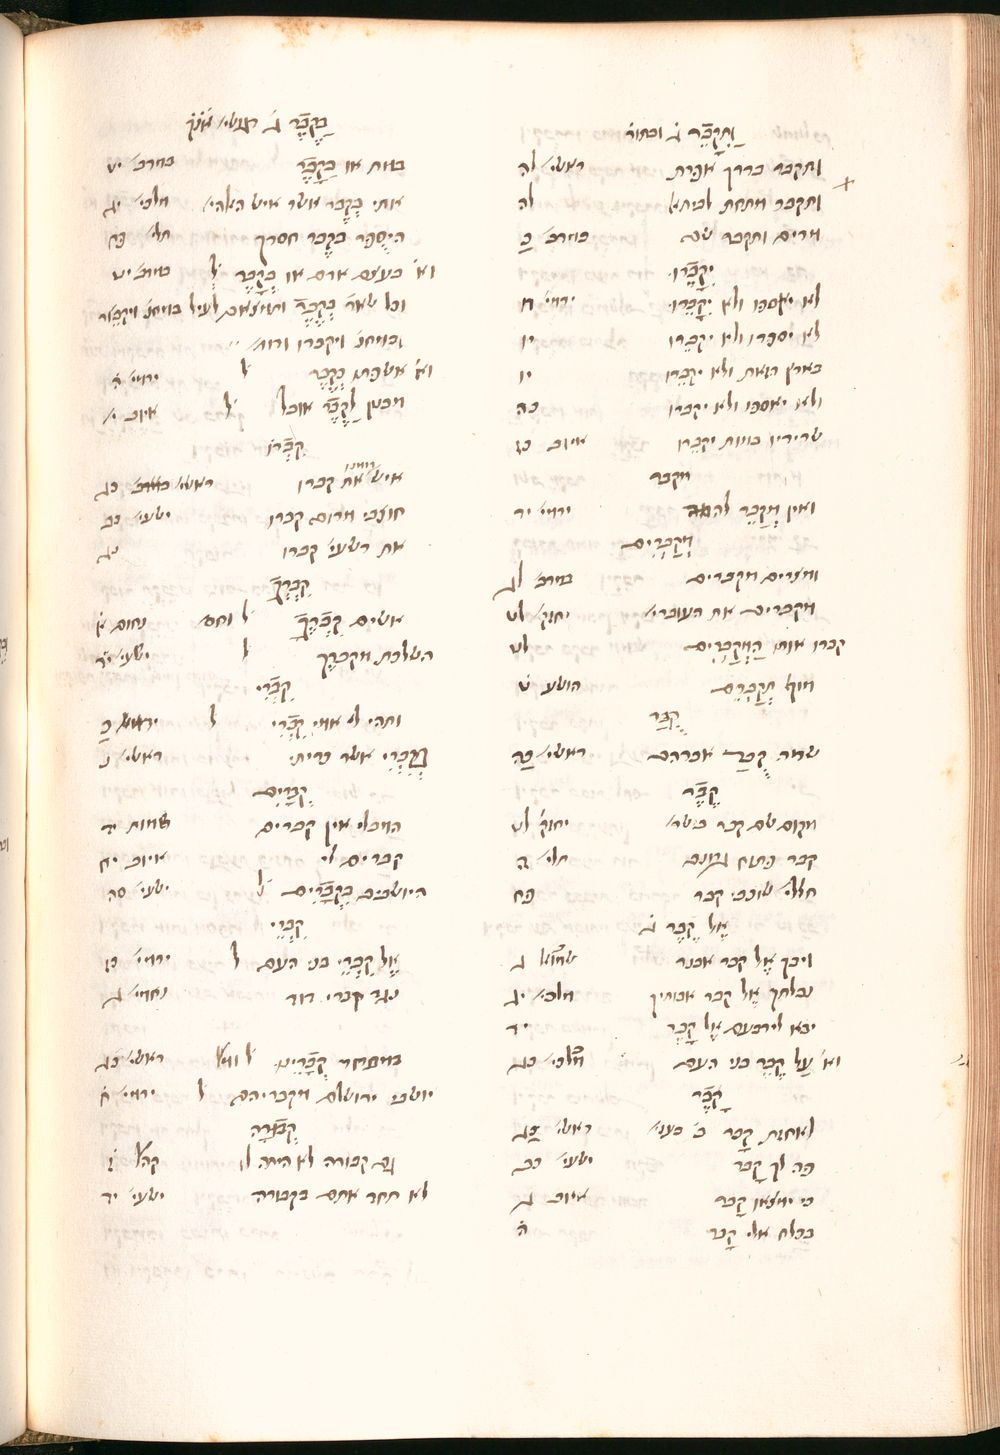 וַתִּקָּבֵר ג׳ וכתור׳
ותקבר בדרך אפרת ראשי׳ לה
ותקבר מתחת לביתא׳ לה
מרים ותקבר שם במדב׳ כ
יִקָּבֵרוּ
לא יאספו ולא יִקָּבֵרוּ ירמי׳ ח
לא יספדו ולא יקברו יו
בארץ הזאת ולא יקברו יו
ולא יאספו ולא יקברו כה
שרידיו במות יקברו איוב כז
מקבר
ואין מְקַבֵּר להמה ירמי׳ יד
מְקַבְּרִים
ומצרים מקברים במדב׳ לג
מקברים את העוברי׳ יחזק׳ לט
קברו אותו הַמְקַבְּרִים לט
מוף תְּקַבְּרֵם הושע ט
קֻבַּר
שמה קֻבַּר אברהם ראשי׳ כה
קֶבֶר
מקום שם קבר בישר׳ יחזק׳ לט
קבר פתוח גרונם תלי׳ ה
חללי׳ שוכבי קבר פח
אֶל קֶבֶר ג׳
ויבך אֶל קבר אבנר שמוא׳ ג
נבלתך אֶל קבר אבותיך מלכי׳ יג
יבא לירבעם אֶל קָבֶר יד
וא׳ עַל קֶבֶר בני העם מלכי׳ כג
קָבֶר
לאחזת קָבֶר ב׳ בעני׳ ראשי׳ כג
פה לך קָבֶר ישעי׳ כב
כי ימצאו קָבֶר איוב ג
בכלח אלי קָבֶר ה
בַּקֶּבֶר ג׳
במת או בְקָבֶר במדב׳ יט
אותי בַּקֶּבֶר אשר איש האהי׳ מלכי׳ יג
היְסֻפַּר בקבר חסדך תלי׳ פח
וא׳ בעצם אדם או בַקָּבֶר ל׳ במדב׳ יט
וכל שאר בְּקֶבֶר ותמצאם לעיל במיתה ויקבור
ובמיתה ויקברו ורות
וא׳ אשפתו כְּקֶבֶר ל׳ ירמי׳ ה
מבטן לַקֶּבֶר אובל ל׳ איוב י
קִבְרוֹ
איש ממנו את קברו ראשי׳ כג
חוצבי מרום קברו ישעי׳ כב
את רשעי׳ קברו נג
קִבְרֶךָ
אשים קִבְרֶךָ ל׳ וחס׳ נחום א
השלכת מקברך ל׳ ישעי׳ יד
קִבְרִי
ותהי לי אמי קִבְרִי ל׳ ירמי׳ כ
בְּקִבְרִי אשר כריתי ראשי׳ נ
קְבָרִים
המבלי אין קברים שמות יד
קברים לי איוב יח
היושבים בַּקְּבָרִים ל׳ ישעי׳ סה
קִבְרֵי
אֶל קִבְרֵי בני העם ל׳ ירמי׳ כו
נגד קברי דוד נחמי׳ ג
במבחר קְבָרֵינוּ ל׳ ומל׳ ראשי׳ כג
יושבי ירושלם מקבריהם ל׳ ירמי׳ ח
קְבוּרָה
גם קבורה לא היתה לו קהל׳ ו
לא תחד אתם בקבורה ישעי׳ יד